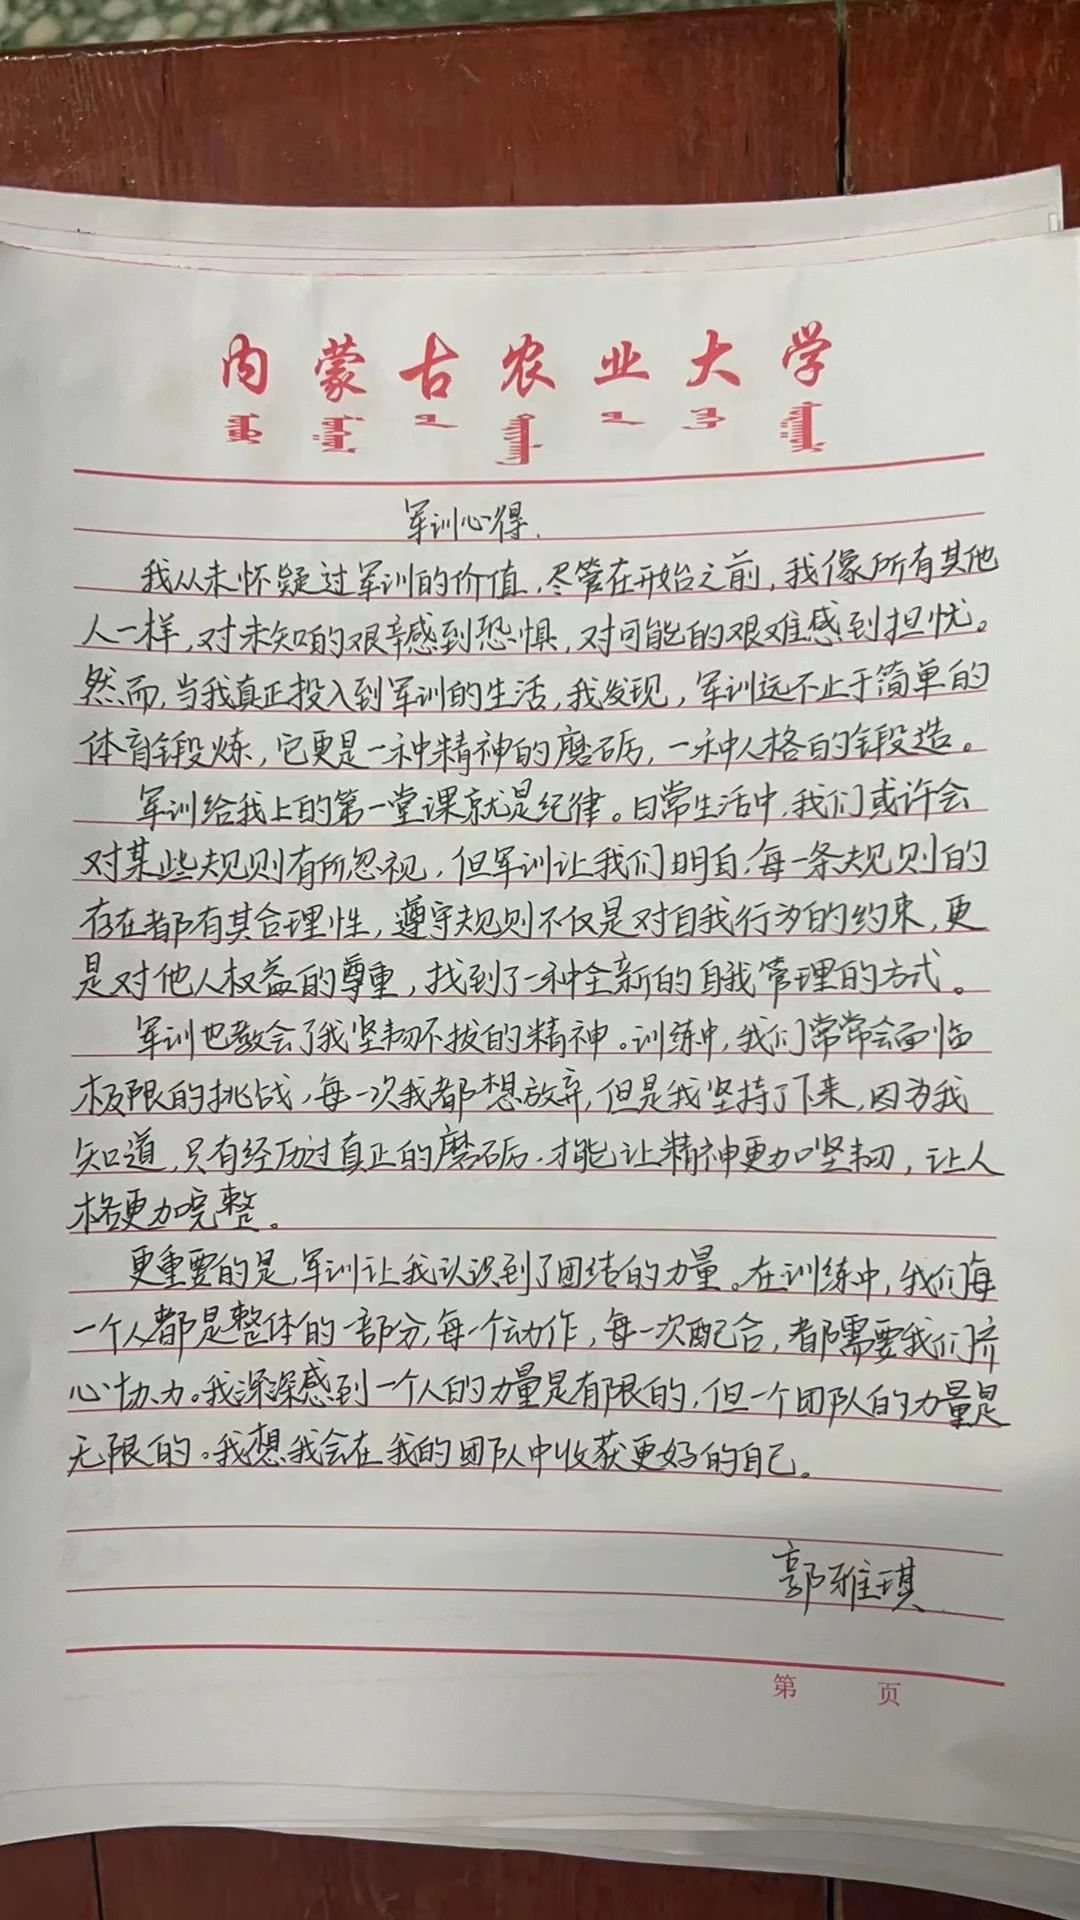 内蒙古农业大学
军训心得.
我从未怀疑过军训的价值，尽管在开始之前，我像所有其他
人一样，对未知的艰辛感到恐惧，对可能的艰难感到担忧。
然而，当我真正投入到军训的生活，我发现，军训远不止于简单的
体育锻炼，它更是一种精神的磨砺，一种人格的锻造。
军训给我上的第一堂课就是纪律。日常生活中，我们或许会
对某些规则有所忽视，但军训让我们明白，每一条规则的
存在都有其合理性，遵守规则不仅是对自我行为的约束，更
是对他人权益的尊重，找到了一种全新的自我管理的方式。
军训也教会了我坚韧不拔的精神。训练中，我们常常会面临
极限的挑战，每一次我都想放弃，但是我坚持了下来，因为我
知道，只有经历过真正的磨砺，才能让精神更加坚韧，让人
格更加完整。
更重要的是，军训让我认识到了团结的力量。在训练中，我们每
一个人都是整体的一部分，每一个动作，每一次配合，都需要我们齐
心协力。我深深感到一个人的力量是有限的，但一个团队的力量是
无限的。我想我会在我的团队中收获更好的自己。
郭雅琪
第 页